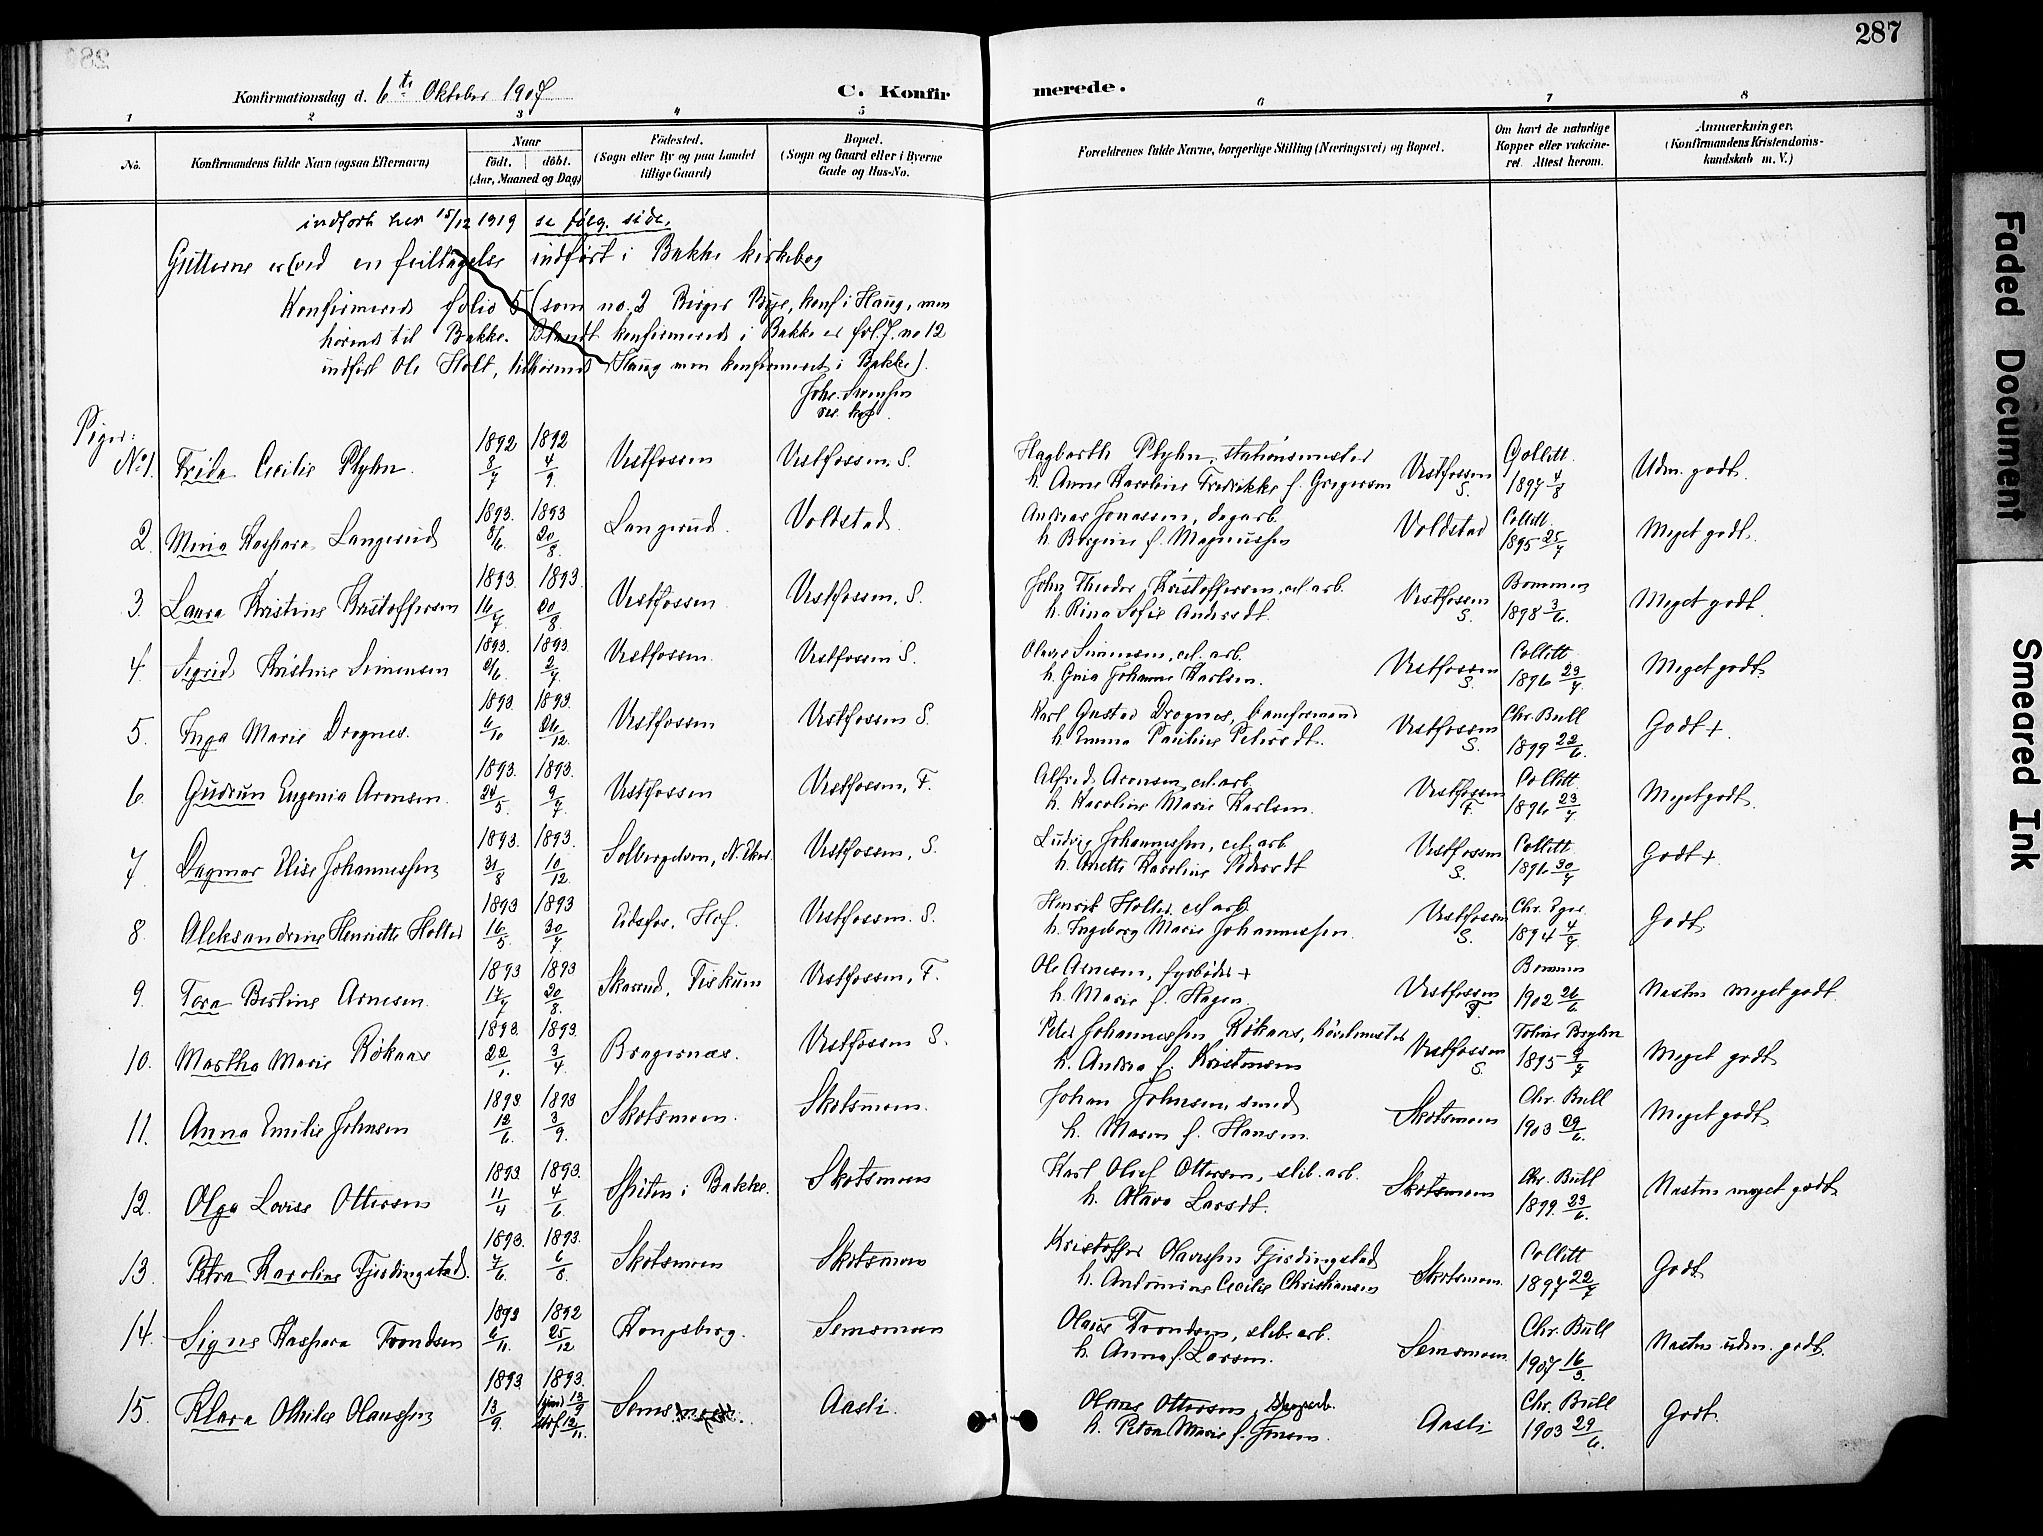 287
Konfirmationsdag d. 6te Oktober 1907
C. Konfirmerede.
1 2 3 4 5 6 7 8
No.
Konfirmandens fulde Navn (ogsaa Efternavn)
Naar
født. døbt.
(Aar, Maaned og Dag)
Fødested.
(Sogn eller By og paa Landet
tillige Gaard)
Bopæl.
(Sogn og Gaard eller i Byerne
Gade og Hus-No.
Forældrenes fulde Navne, borgerlige Stilling (Næringsvei) og Bopæl.
Om havt de naturlige
Kopper eller vakcine-
ret. Attest herom.
Anmærkninger.
(Konfirmandens Kristendoms-
kundskab m. V.)
indført her 15/12 1919 se følg. side.
Gutterne er (ved en feiltagelse indført i Bakke kirkebog
Konfirmerede folio 5 (som no. 2 Birger Bye, konf i Haug, men
hørende til Bakke. Blandt konfirmerede i Bakke er fol. 7. no 12
indført Ole Holt, tilhørende Haug men konfirmeret i Bakke).
Piger:
No 1. Frida Cecilie Plyhn. 1892 3/7 1892 4/9 Vestfossen Vestfossen, S. Hagbarth Plyhn, stationsmester
h. Anne Karoline Fredrikke f. Gregersen Vestfossen S. Collett 1897 4/8 Udm. godt.
2. Minia Kaspara Langerud 1893. 8/6. 1893 20/8. Langerud. Voldstad. Andreas Jonassen, dagarb.
h. Bergine f. Magnussen Voldstad Collett. 1895 25/7 Meget godt.
3. Laura Kristine Kristoffersen 1893. 16/7 1893. 20/8. Vestfossen Vestfossen, S. John Theodor Kristoffersen, cel. arb.
h. Rina Sofie Andersdt. Vestfossen S. Bommen 1898 3/6. Meget godt
4. Sigrid Kristine Simensen 1893. 21/6. 1893. 2/7. Vestfossen Vestfossen S. Olaves Simensen, cel. arb.
h. Gina Johanne Karlsen. Vestfossen S. Collett 1896 23/7. Meget godt
5. Inga Marie Drognes. 1893. 6/10 1893. 26/12. Vestfossen Vestfossen S. Karl Gustav Drognes, baneformand
h. Emma Pauline Petersdt. Vestfossen S. Chr. Bull 1899 22/6. Godt +.
6 Gudrun Eugenia Aronsen. 1893. 24/5. 1893. 9/7. Vestfossen Vestfossen, F. Alfred Aronsen, cel. arb.
h. Karoline Marie Karlsen. Vestfossen F. Collett 1896 23/7 Meget godt.
7 Dagmar Elise Johannessen 1893. 31/8 1893. 10/12. Solbergelven, N. Eker. Vestfossen, S. Ludvig Johannessen, cel. arb
h. Anette Karoline Pedersdt Vestfossen S. Collett. 1896 30/7 Godt +.
8. Aleksandrine Henriette Holter 1893 16/5. 1893 30/7 Eidsfos, Hof. Vestfossen. S. Henrik Holter cel arb.
h. Ingeborg Marie Johannessen. Vestfossen S. Chr. Eger 1894 4/7. Godt
9. Tora Bertine Arnesen. 1893 17/7 1893 20/8. Skarrud, Fiskum Vestfossen, F. Ole Arnesen, fyrbøder +
h. Marie f. Hagen. Vestfossen F. Bommen 1902 26/6. Næsten meget godt.
10. Martha Marie Rökaas 1893. 22/1. 1893. 3/4. Bragernæs. Vestfossen S. Peter Johannessen Rökaas, hövelmester
h. Andrea f. Kristensen Vestfossen S. 1895 9/7 Meget godt
11. Anna Emilie Johnsen 1893 12/6. 1893 3/9. Skotsmoen. Skotsmoen. Johan Johnsen, smed
h. Maren f. Hansen. Skotsmoen Chr. Bull 1903 29/6. Meget godt
12. Olga Lovise Ottersen 1893 11/4 1893. 4/6. Skiten i Bakke. Skotsmoen Karl Oluf Ottersen, slib. arb.
h. Olava Larsdt. Skotsmoen Chr. Bull 1899. 23/6. Næsten meget godt
13. Petra Karoline Fjerdingstad. 1893. 7/6. 1893. 6/8. Skotsmoen Skotsmoen Kristoffer Olavessen Fjerdingstad
h. Andomine Cecilie Christiansen Skotsmoen. Collett 1897 22/7 Godt
14. Signe Kaspara Trondsen 1893 6/11. 1892 25/12. Kongsberg. Semsmoen Olaus Trondsen, slib. arb.
h. Anna f. Larsen. Semsmoen. Chr. Bull 1907 16/3. Næsten udm. godt.
15. Klara Othilie Olaussen 1893. 13/9. 1893. hjem 13/9 Aasli. Olaus Ottersen
h. Petra Marie f. Jensen. Aasli Chr. Bull 1903 29/6. Godt
Faded Document
Smeared Ink